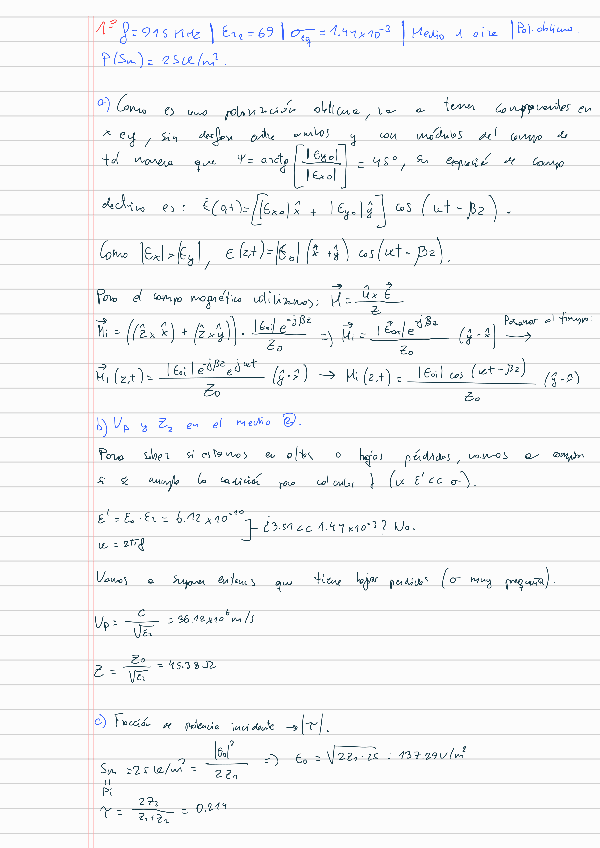 1º f=915 MHz | εr2=69 | σeq=1.47x10^-3 | Medio 1 aire | Pol. oblicua
P(Sm)=25W/m².
a) Como es una polarización oblicua, va a tener componentes en
x e y, sin desfase entre ambos y con módulos del campo de
tal manera que Ψ=arctg[|Eyo|/|Exo|]=45º, su expresión de campo
eléctrico es: E(z,t)=[|Exo|x̂ + |Eyo|ŷ] cos(ωt-βz).
Como |Ex|=|Ey|, E(z,t)=|Eo|(x̂+ŷ) cos(ωt-βz).
Para el campo magnético utilizamos: H=ûxE/Z
Hi=((ẑxx̂)+(ẑxŷ))·|Eoi|e^-jβz/Z0 => Hi=|Eoi|e^-jβz/Z0 (ŷ-x̂) Pasamos al tiempo: →
Hi(z,t)=|Eoi|e^-jβz e^jωt/Z0 (ŷ-x̂) → Hi(z,t)=|Eoi|cos(ωt-βz)/Z0 (ŷ-x̂)
b) Vp y Z2 en el medio 2.
Para saber si estamos en altas o bajas pérdidas, vamos a
si se cumple la condición para calcular (ω ε' << σ).
ε'=ε0·εr=6.12x10^-10
ω=2πf
¿3.51<<1.47x10^-3? No.
Vamos a suponer entonces que tiene bajas perdidas (σ muy pequeña).
Vp=c/√εr=36.12x10^6 m/s
Z=Z0/√εr=45.38Ω
c) Fracción de potencia incidente → |τ|.
Sm=25W/m²=|E0|²/2Z1 => E0=√2Z1·25=137.29V/m²
Pi
τ=2Z2/Z1+Z2=0.214